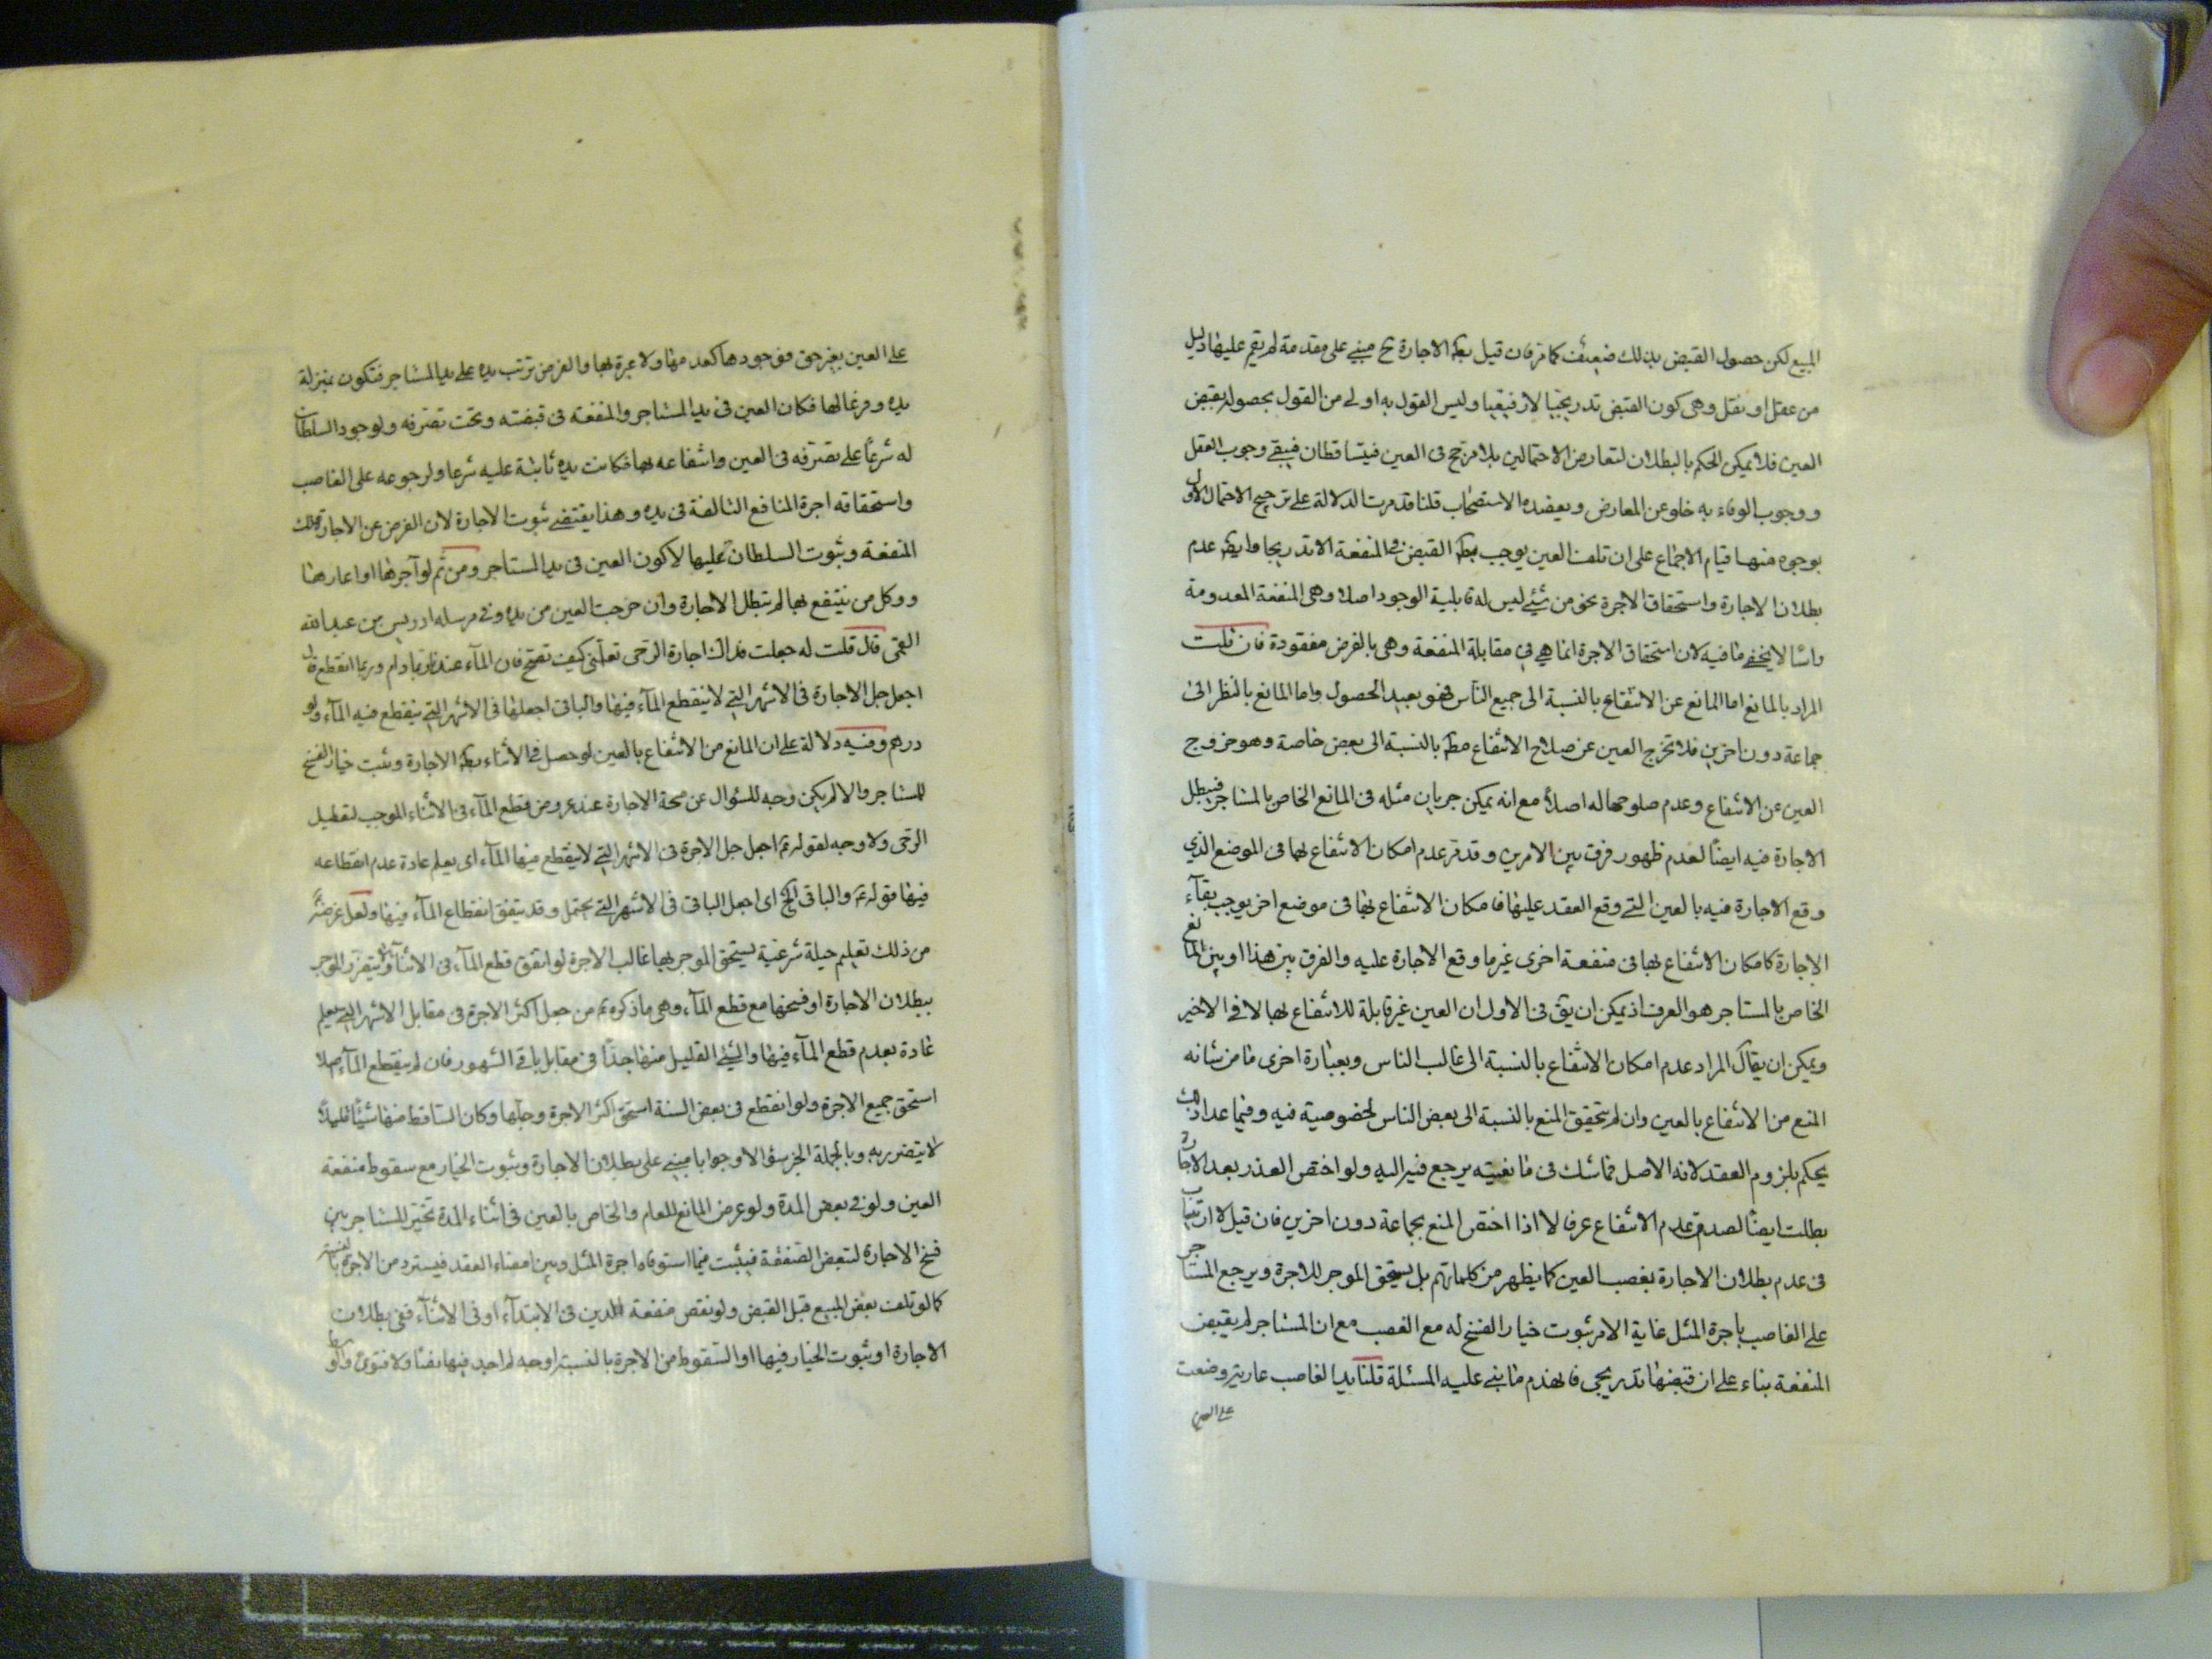 المبيع لكن حصول القبض بذلك ضعيف كما مر فان قيل بطلا الاجارة ح مبني على مقدمة لم يقم عليها دليل
من عقل او نقل وهي كون القبض تدريجيا لا وليس القول به اولى من القول بحصوله بقبض
العين فلا يمكن الحكم بالبطلان لتعارض الاحتمالين بلا مرجح في العين فيتساقطان فيبقى وجوب العقل
ووجوب الوفاء به خلو عن المعارض ويعضده الاستصحاب قلنا قد مرت الدلالة على ترجيح الاحتمال الاول
بوجوه منها قيام الاجماع على ان تلف العين يوجب القبض في المنفعة الا تدريجا عدم
بطلان الاجارة واستحقاق الاجرة نحو من شيئ ليس له قابلية الوجود اصلا وهي المنفعة المعدومة
لا يخفى ما فيه لان استحقاق الاجرة انما هي في مقابلة المنفعة وهي بالفرض مفقودة فان قلت
المراد بالمانع اما المانع عن الانتفاع بالنسبة الى جميع الناس فهو بعيد الحصول واما المانع بالنظر الى
جماعة دون اخرين فلا تخرج العين عن صلاح الانتفاع مطم بالنسبة الى بعض خاصة وهو خروج
العين عن الانتفاع وعدم صلوحها له اصلا مع انه يمكن جريان مثله في المانع الخاص بالمستاجر فيبطل
الاجارة فيه ايضا لعدم ظهور فرق بين الامرين وقد مر عدم امكان الانتفاع لها في الموضع الذي
وقع الاجارة فيه بالعين التي وقع العقد عليها فامكان الانتفاع بها في موضع اخر يوجب بقاء
الاجارة كامكان الانتفاع بها في منفعة اخرى غير ما وقع الاجارة عليه والفرق بين هذا وبين المانع
الخاص بالمستاجر هو العرف اذ يمكن ان يق في الاول ان العين غير قابلة للانتفاع بها لا في الاخير
ويمكن ان يقال المراد عدم امكان الانتفاع بالنسبة الى غالب الناس وبعبارة اخرى ما من شانه
المنع من الانتفاع بالعين وان لم يتحقق المنع بالنسبة الى بعض الناس لخصوصية فيه وفيما عدا ذلك
يحكم بلزوم العقد لانه الاصل فما شك في يرجع فيه اليه ولو اختص العذر بعد الاجارة
بطلت ايضا لصدق عدم الانتفاع عرفا لا اذا اختص المنع بجماعة دون اخرين فان قيل لا ارتياب
في عدم بطلان الاجارة بغصب العين كما يظهر من كلماتهم بل يستحق الموجر للاجرة ويرجع المستاجر
على الغاصب باجرة المثل غاية الامر ثبوت خيار الفسخ له مع الغصب مع ان المستاجر لم يقبض
المنفعة بناء على ان قبضها تدريجي فانهدم ما بني عليه المسئلة قلنا يد الغاصب عارية وضعت
على العين
على العين بغير حق فوجودها كعدمها ولا عبرة بها والفرض ترتب يده على يد المستاجر فتكون بمنزلة
يده وفرعا لها فكان العين في يد المستاجر والمنفعة في قبضته وتحت تصرفه ولوجود السلطان
له شرعا على تصرفه في العين وانتفاعه بها فكانت يده ثابتة عليه شرعا ولرجوعه على الغاصب
واستحقاقه اجرة المنافع التالفة في يده وهذا يقتضي ثبوت الاجارة لان الغرض عن الاجارة تملك
المنفعة وثبوت السلطان عليها لا كون العين في يد المستاجر ومن ثم لو آجرها او اعارها
ووكل من ينتفع بها لم تبطل الاجارة وان خرجت العين من يده وفي مرسلة ادريس بن عبد الله
القمي قال قلت له جعلت فداك اجارة الرحى تعلمني كيف تصح فان المآء عندنا ربما دام وربما انقطع قال
اجعل جل الاجارة في الاشهر التي لا ينقطع المآء فيها والباقي اجعلها في الاشهر التي ينقطع فيه المآء ولو
درهم وفيه دلالة على ان المانع من الانتفاع بالعين لو حصل في الاثناء الاجارة ويثبت خيار الفسخ
للمستاجر والا لم يكن وجه للسؤال عن صحة الاجارة عند عروض قطع المآء في الاثناء الموجب لتعطيل
الرحى ولا وجه لقوله ع اجعل جل الاجرة في الاشهر التي لا ينقطع فيها المآء اى يعلم عادة عدم انقطاعه
فيها فقوله ع والباقي الخ اى اجعل الباقي في الاشهر التي يحتمل وقد يتفق انقطاع المآء فيها ولعل غرضه
من ذلك تعليم حيلة شرعية ليستحق الموجر بها غالب الاجرة لو اتفق قطع المآء في الاثناء ولئلا يتضرر الموجر
ببطلان الاجارة او فسخها مع قطع المآء وهي ما ذكره ع من جعل اكثر الاجرة في مقابل الاشهر التي يعلم
عادة بعدم قطع المآء فيها والشيئ القليل منها جدا في مقابل باقي الشهور فان لم ينقطع المآء اصلا
استحق جميع الاجرة ولو انقطع في بعض السنة استحق اكثر الاجرة وجلها وكان الساقط منها شيئا قليلا
لا يتضرر به وبالجملة الخبر سؤالا وجوابا مبني على بطلان الاجارة وثبوت الخيار مع سقوط منفعة
العين ولو في بعض المدة ولو عرض المانع للعام والخاص بالعين في اثناء المدة تخير المستاجر بين
فسخ الاجارة لتبعض الصفقة فيثبت فيما استوفاه اجرة المثل وبين امضاء العقد فيسترد من الاجرة بالنسبة
كما لو تلفت بعض المبيع قبل القبض ولو نقص منفعة العين في الابتدآء او في الاثنآء ففي بطلان
الاجارة او ثبوت الخيار فيها او السقوط من الاجرة بالنسبة اوجه لم اجد فيها نصا ولا فتوى